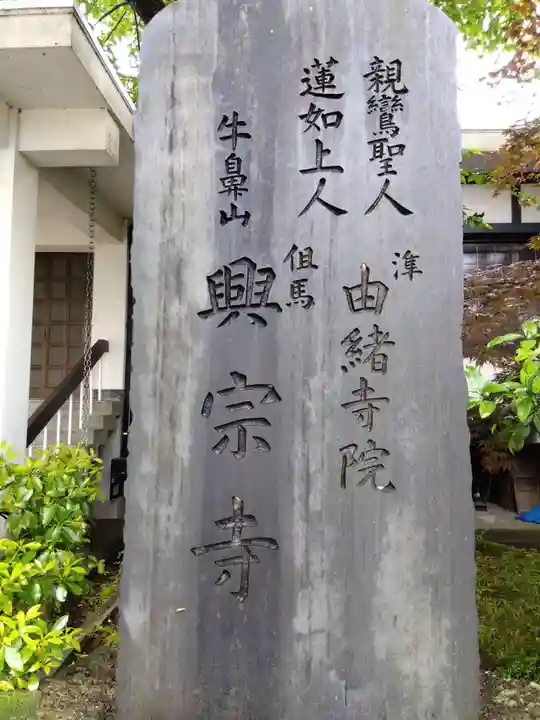 親鸞聖人
蓮如上人
准由緒寺院
但馬
牛鼻山
興宗寺